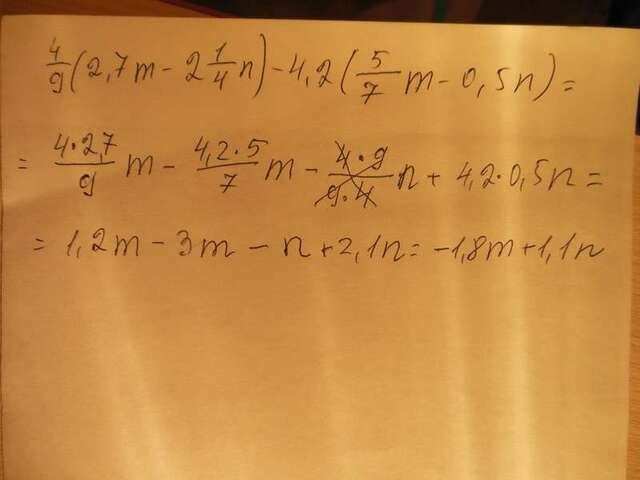 4/9(2,7m - 2 1/4 n) - 4,2(5/7 m - 0,5n) =
= 4·2,7/9 m - 4,2·5/7 m - 4·9/9·4 n + 4,2·0,5n =
= 1,2m - 3m - n + 2,1n = -1,8m + 1,1n